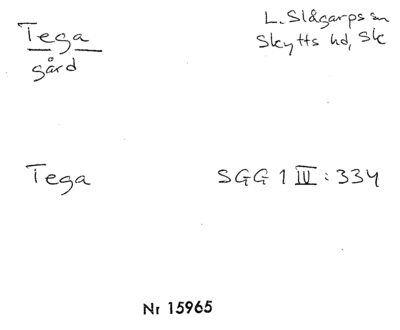 Tega
gård
L. Slågarps sn
Skytts hd, Sk
Tega
SGG 1 IV: 334
Nr 15965